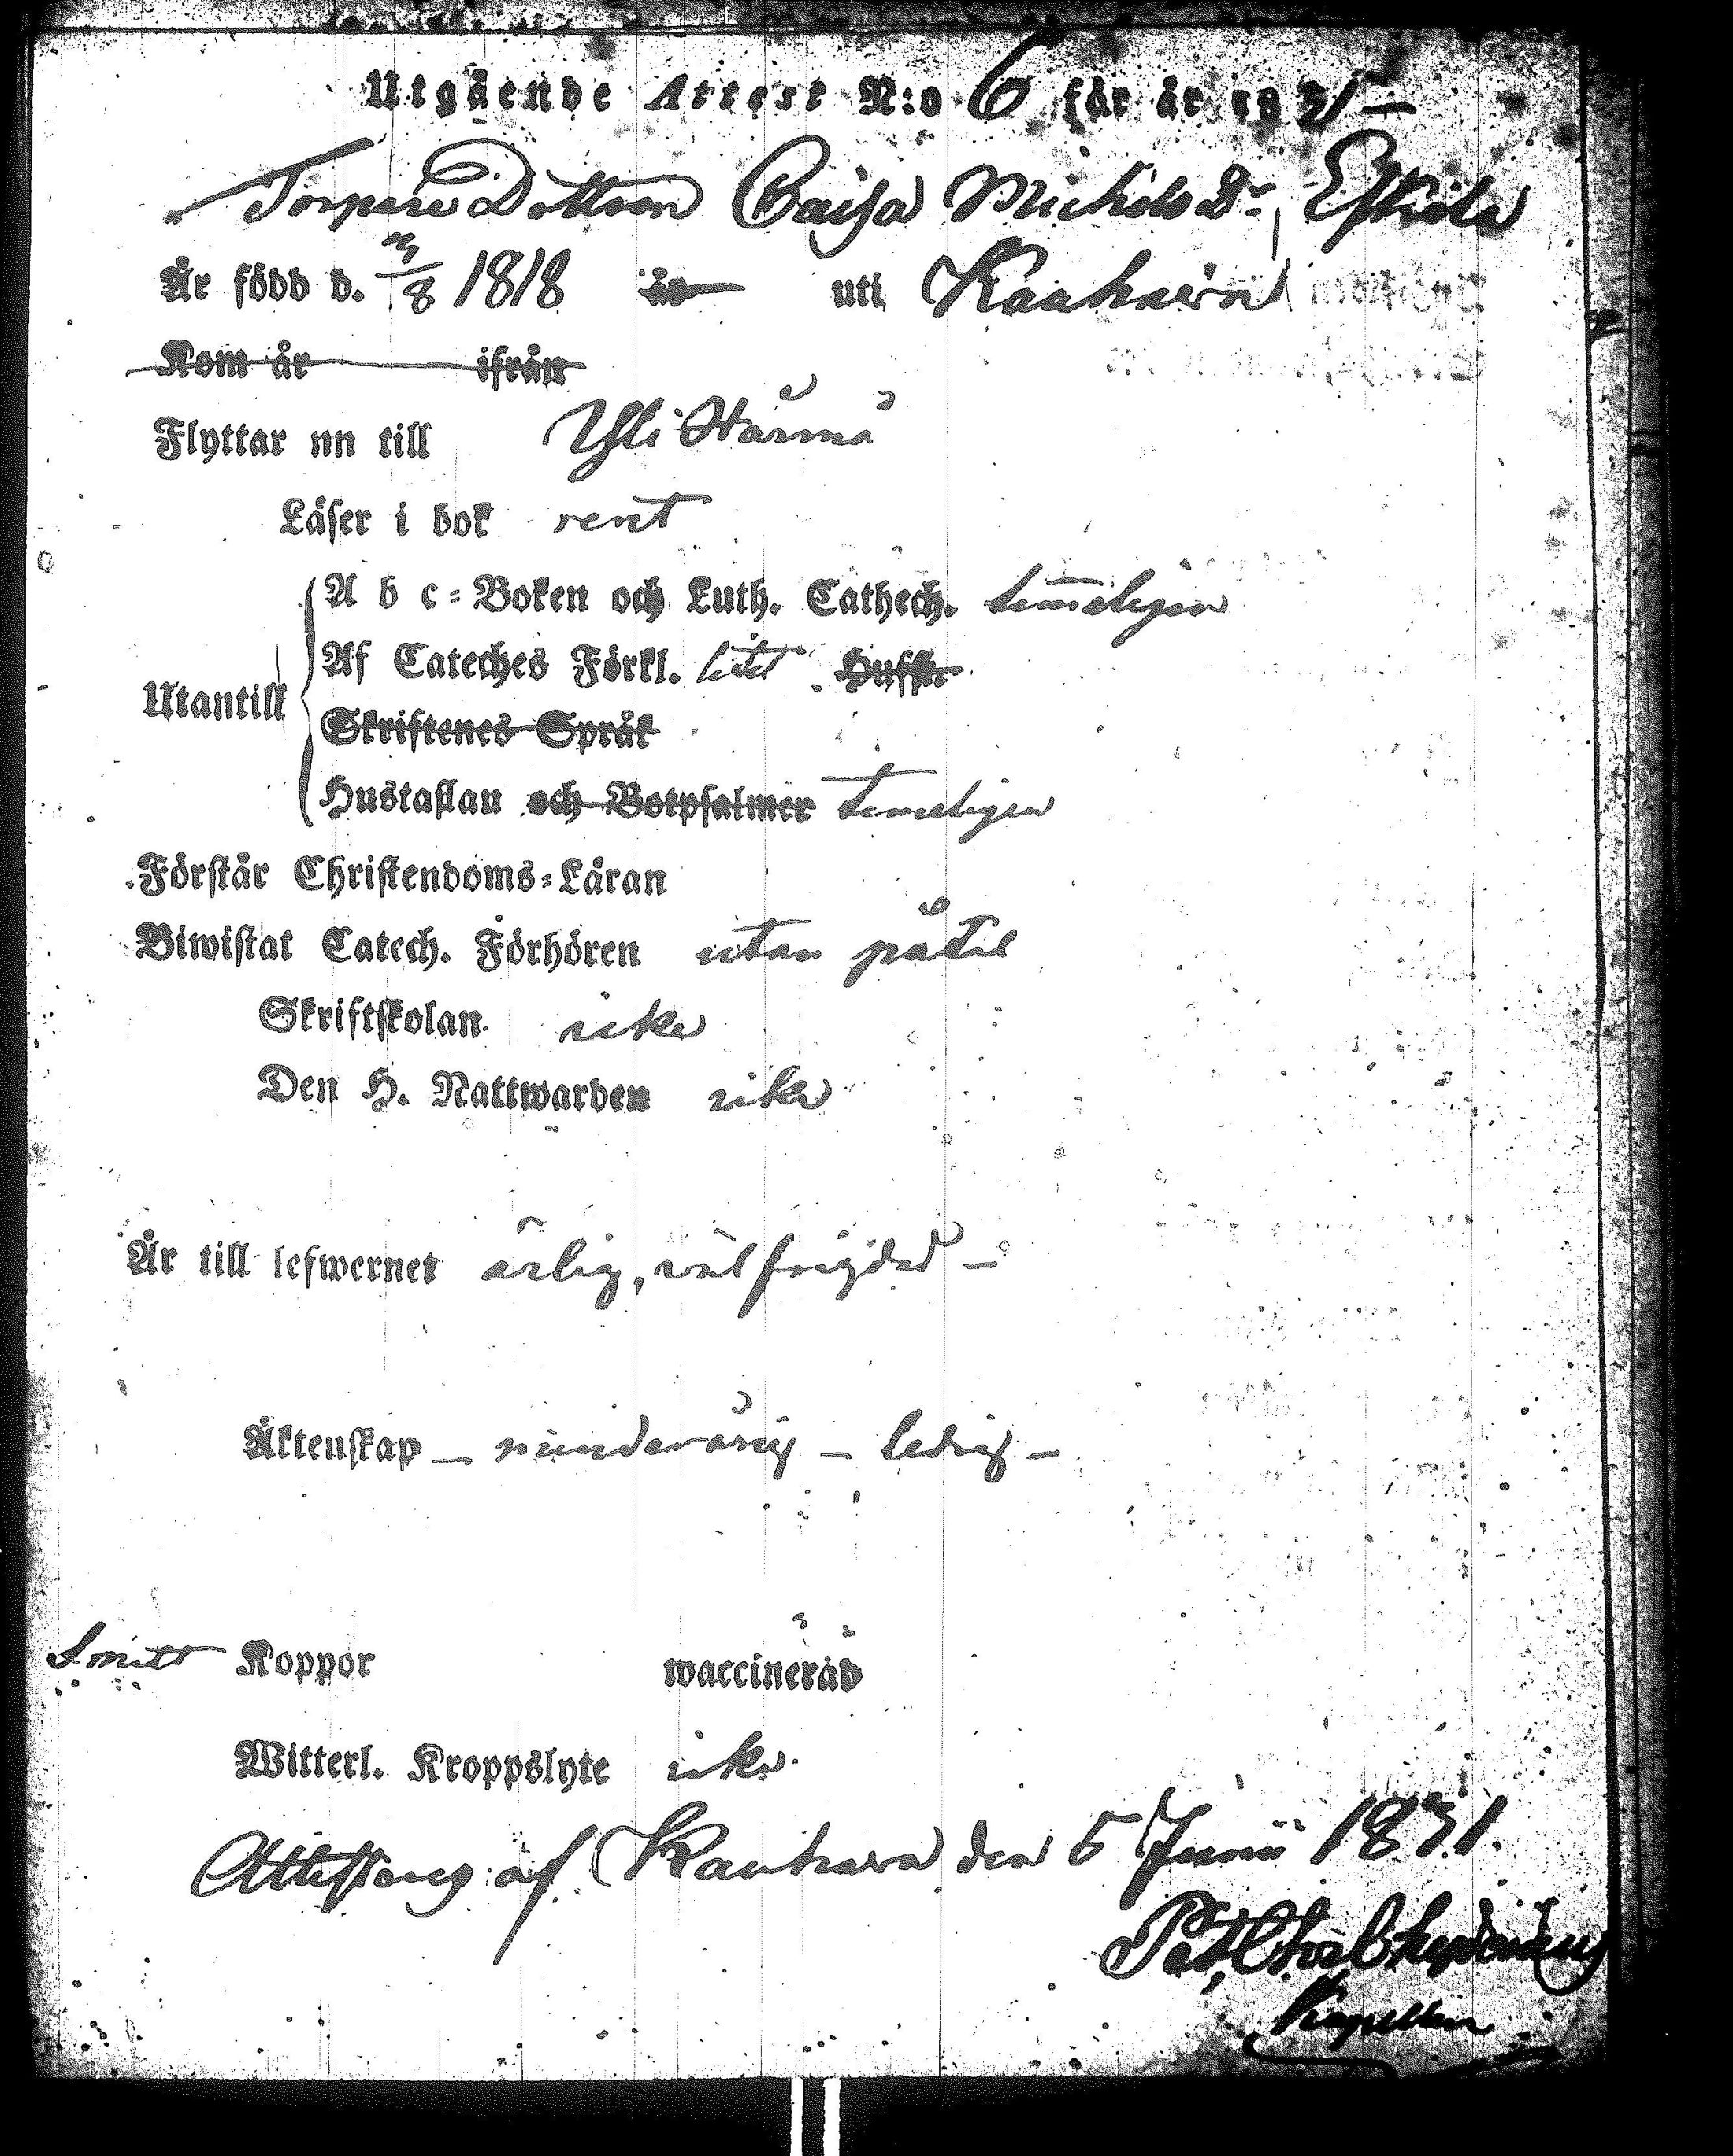 Utgående Attest N:o 6 för år 1831 —
Torpare Dottren Caisa Michels Dr, Eskila
År född d. /8 1818 år uti Kauhava
Kom år ifrån
Flyttar nu till Yli Härmä
Läser i bok rent
A b c-Boken och Luth. Cathech. temeligen
Af Cateches Förkl. litet Huffr
Utantill
Skriftenes Språk
Hustaflan och Botpsalmer temeligen
Förstår Christendoms-Läran
Biwistat Catech. Förhören utan påtal
Skriftskolan icke
Den H. Nattwarden icke
Är till lefwernet ärlig, väl frejdad —
Äktenskap — minderårig — ledig —
Smitt Koppor waccineråd
Witterl. Kroppslyte icke.
Attesteras af Kauhava den 5 Junii 1831.
Kapellan